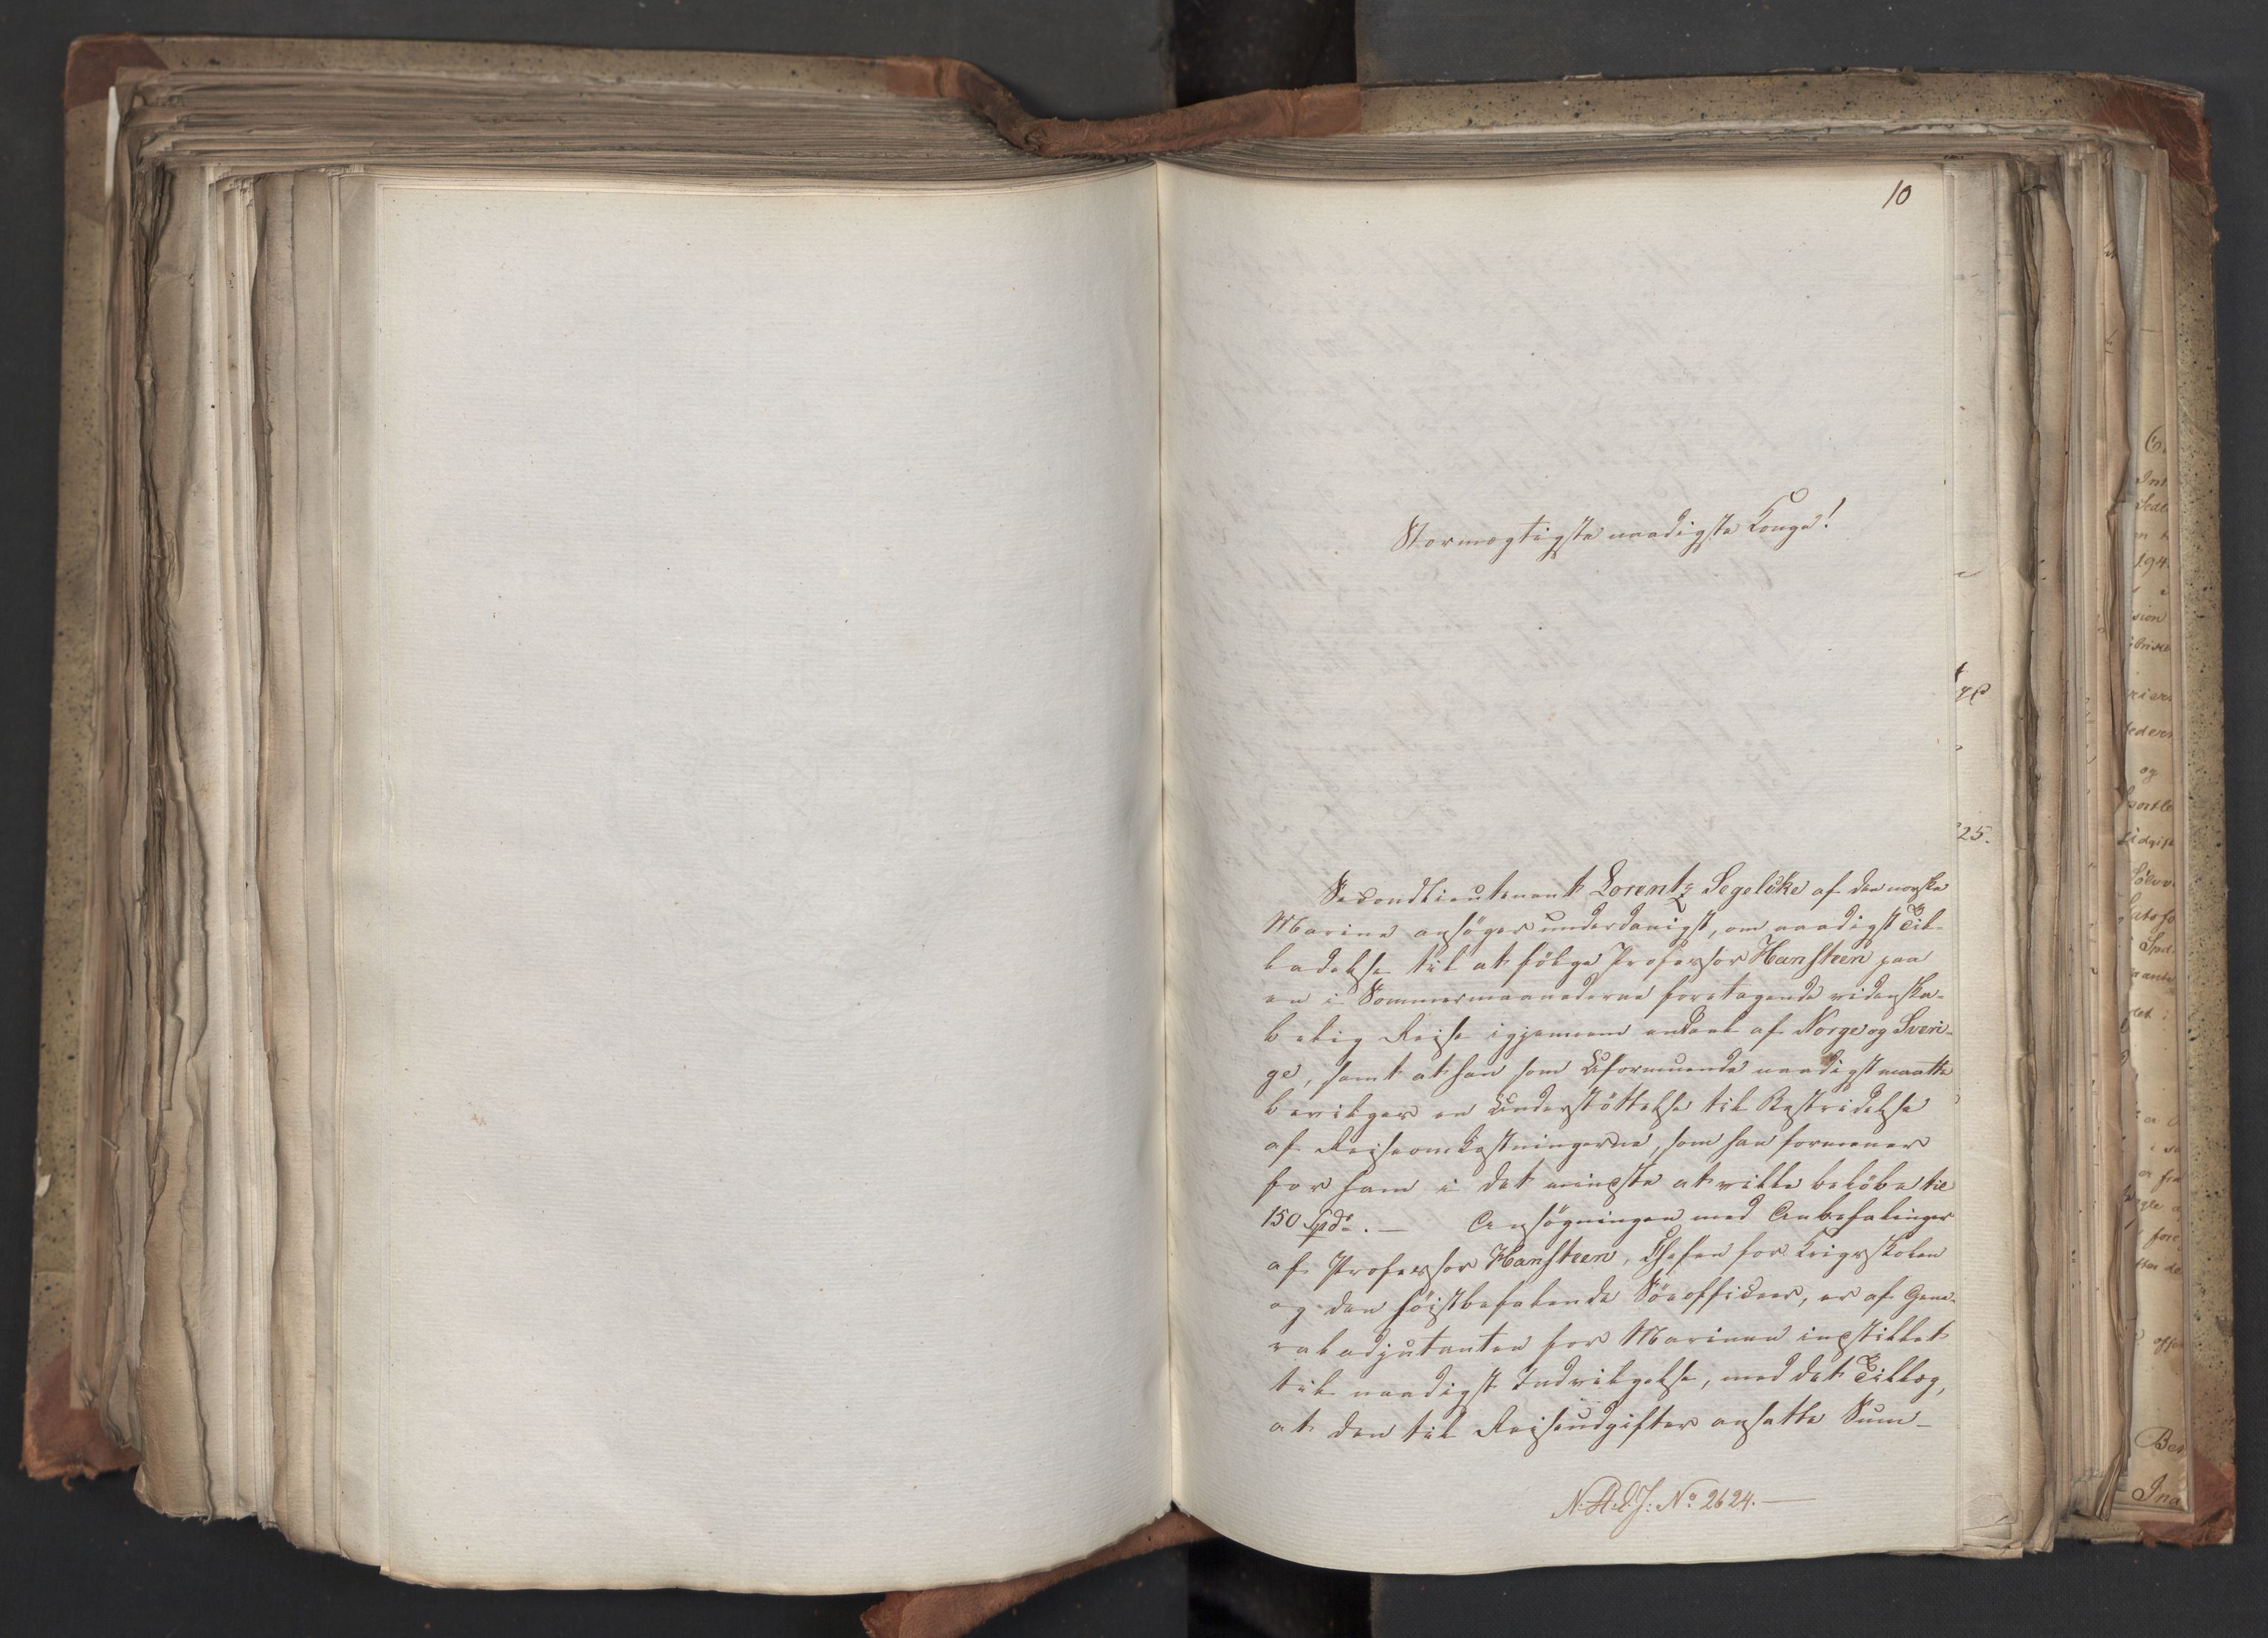 10
Stormægtigste naadigste Konge!
Secondlieutenant Lorentz Segelcke af den norske
Marine ansøger underdanigst, om naadigst Til-
ladelse til at følge Professor Hansteen paa
en i Sommermaanederne foretagende videnska-
belig Reise igjennem endeel af Norge og Sveri-
ge, samt at han som Uformuende naadigst maatte
bevilges en Understøttelse til Bestridelse
af Reiseomkostningerne, som han formener
for ham i det mindste at ville beløbe til
150 Spd. — Ansøgningen med Anbefalinger
af Professor Hansteen, Chefen for Krigsskolen
og den høistbefalende Søeofficeer, er af Gene-
raladjutanten for Marinen indstillet
til naadigst Indvilgelse, med det Tillæg,
at den til Reiseudgifter ansatte Sum-
No. 2624. —
25.